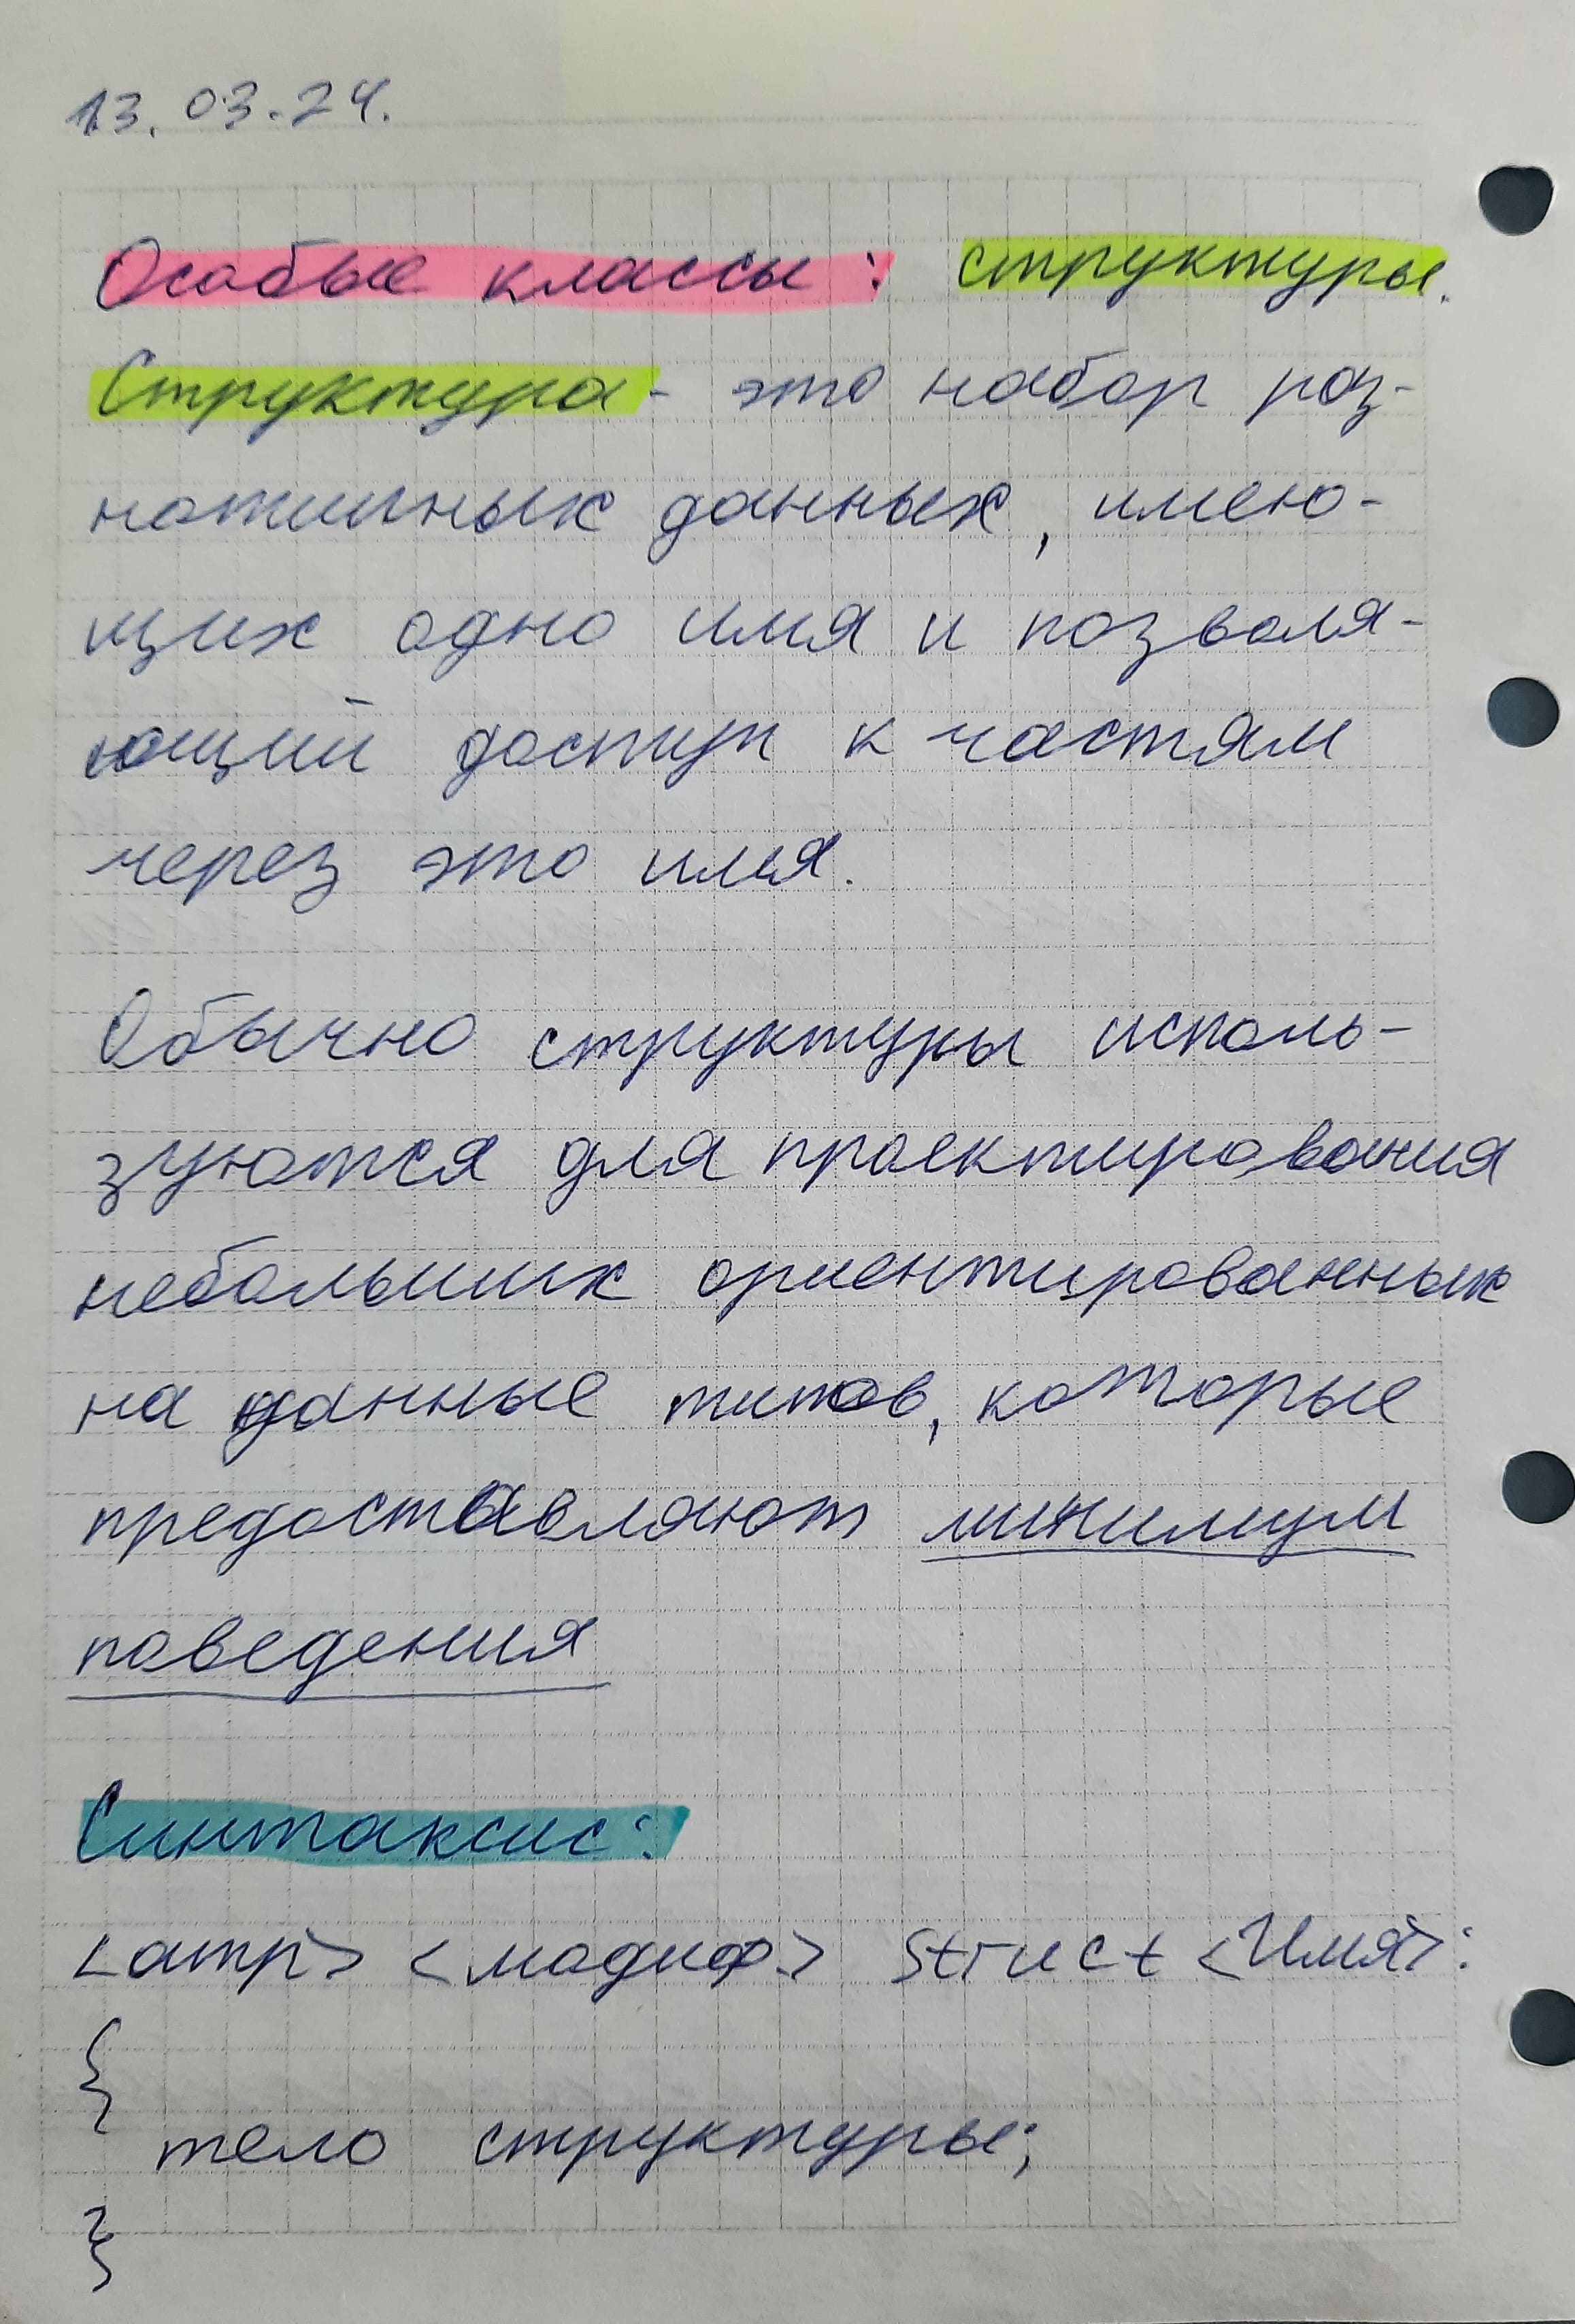 13.03.24.
Особые классы: структуры.
Структура - это набор раз-
нотипных данных, имею-
щих одно имя и позволя-
ющий доступ к частям
через это имя.
Обычно структуры исполь-
зуются для проектирования
небольших ориентированных
на данные типов, которые
предоставляют минимум
поведения
Синтаксис:
<атр> <модиф.> struct <Имя>:
{
тело структуры;
}